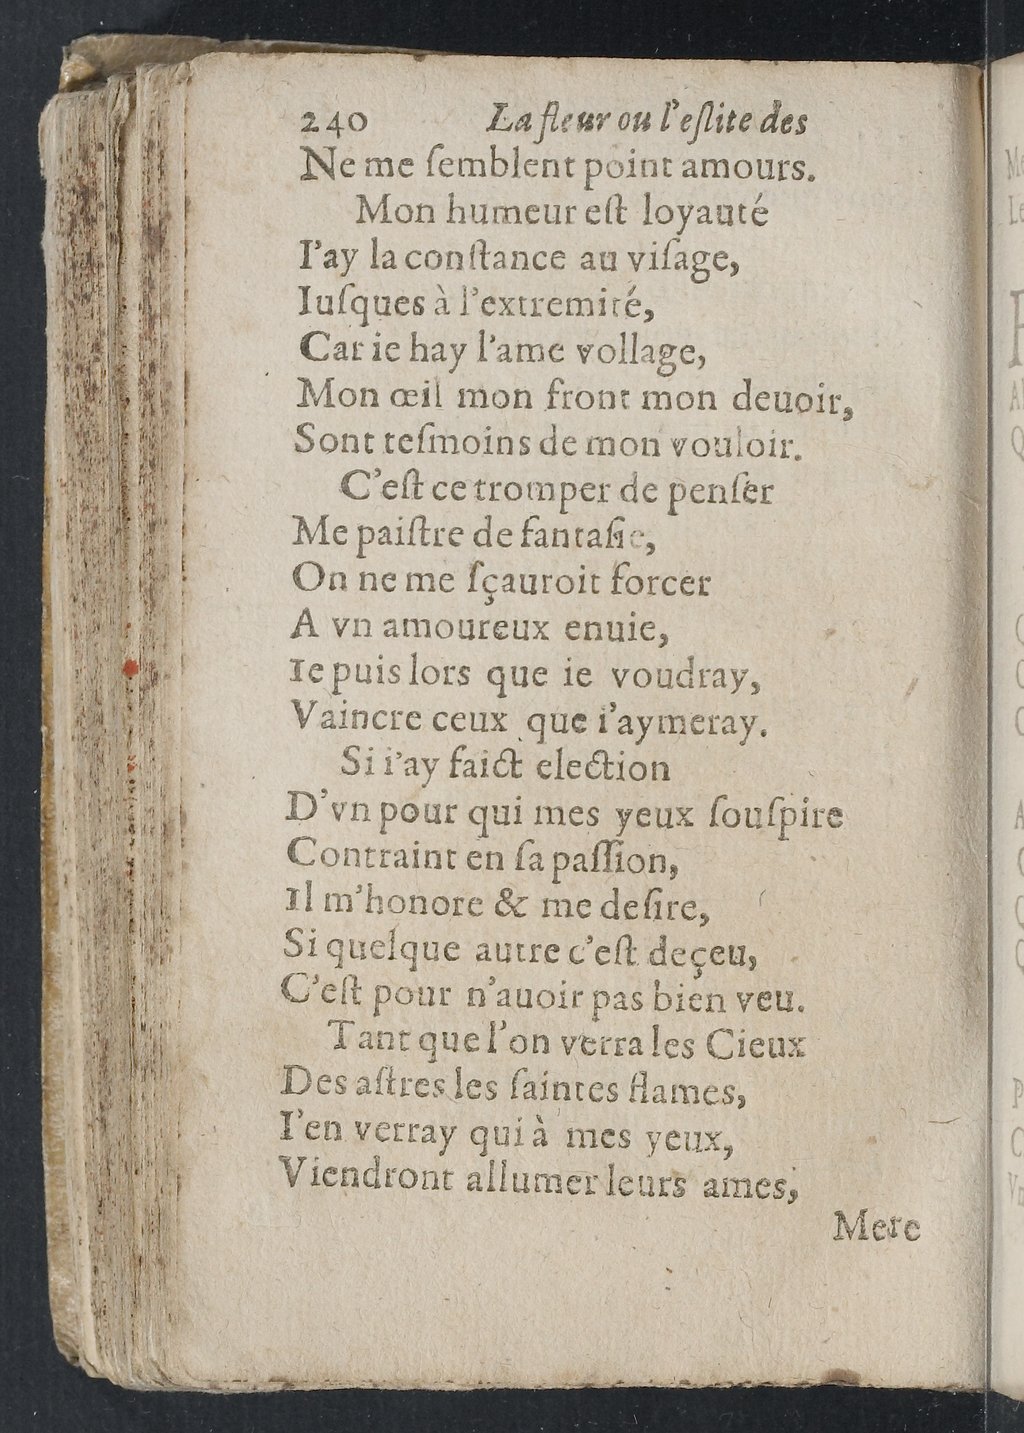 240 La fleur ou l'eſlite des
Ne me ſemblent point amours.
Mon humeur eſt loyauté
I'ay la conſtance au viſage,
Iuſques à l'extremité,
Car ie hay l'ame vollage,
Mon œil mon front mon deuoir,
Sont teſmoins de mon vouloir.
C'eſt ce tromper de penſer
Me paiſtre de fantaſie,
On ne me ſçauroit forcer
A vn amoureux enuie,
Ie puis lors que ie voudray,
Vaincre ceux que i'aymeray.
Si i'ay faict election
D'vn pour qui mes yeux ſouſpire
Contraint en ſa paſſion,
Il m'honore & me deſire,
Si quelque autre c'eſt deçeu,
C'eſt pour n'auoir pas bien veu.
Tant que l'on verra les Cieux
Des aſtres les ſaintes flames,
I'en verray qui à mes yeux,
Viendront allumer leurs ames,
Mere